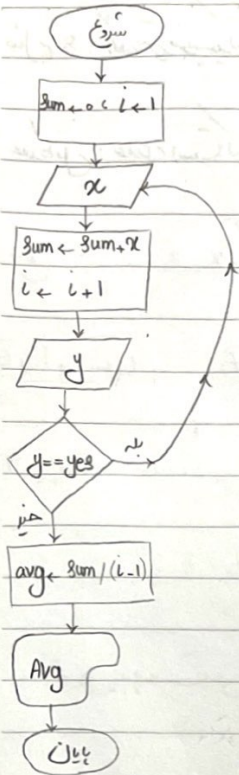 شروع
sum ← 0 ، i ← 1
x
sum ← sum + x
i ← i + 1
y
y == yes
بله
خیر
avg ← sum / (i - 1)
Avg
پایان